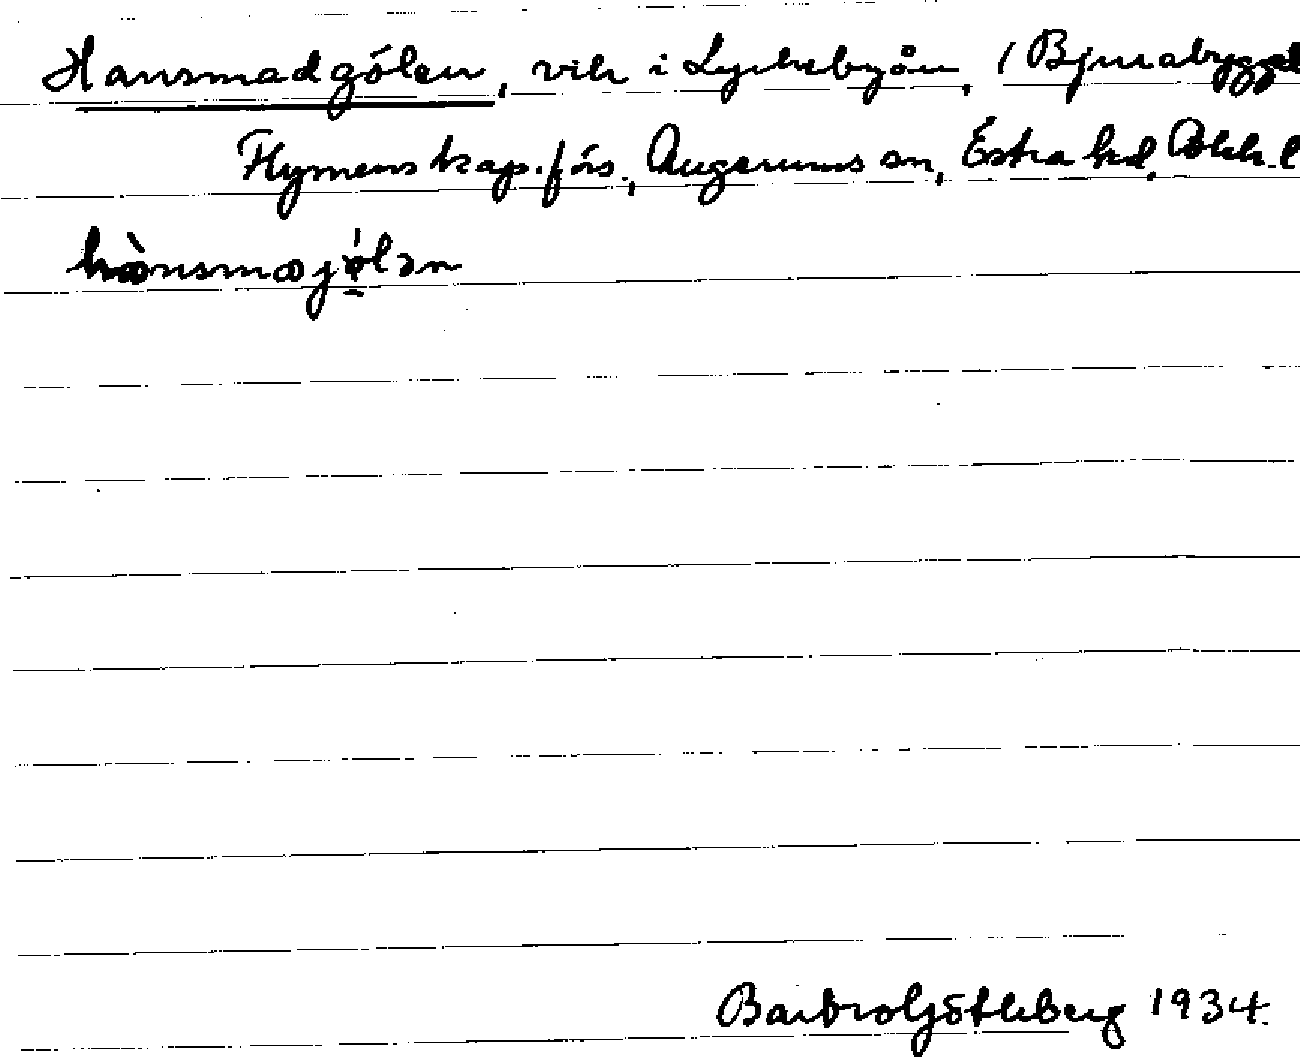 Hansmadgölen, vik i Lyckebyån, (Bjurabygget
Flymens kap.förs., Augerums sn, Östra hd, Blek. l
hànsmajǿlən
Barbro Götleberg 1934.